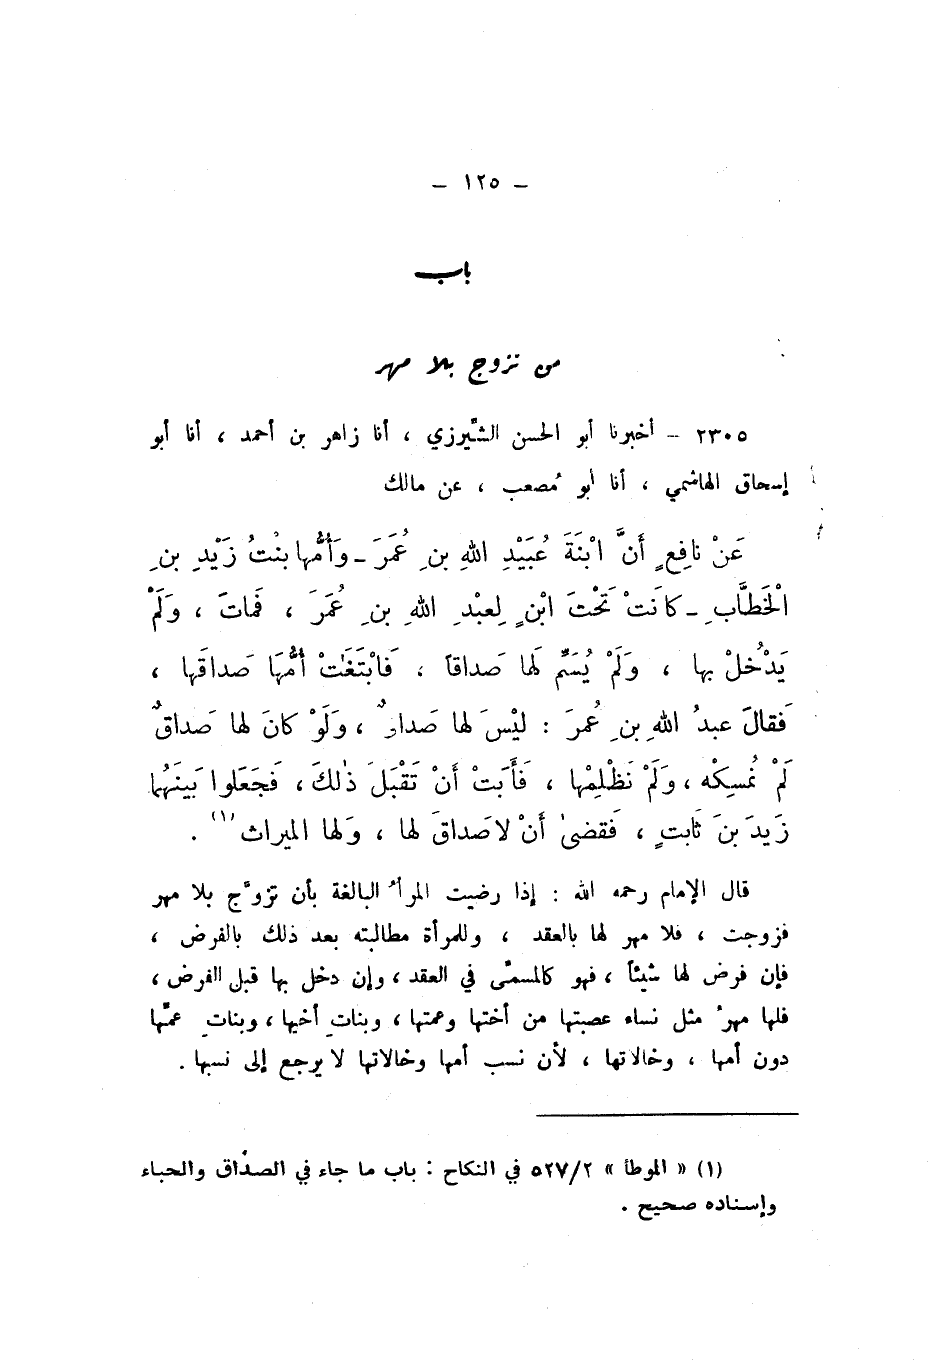 – ١٢٥ –
باب
من تزوج بلا مهر
٢٣٠٥ – أخبرنا أبو الحسن الشِّيرزي ، أنا زاهر بن أحمد ، أنا أبو
إسحاق الهاشمي ، أنا أبو مُصعب ، عن مالك
عَنْ نافِعٍ أَنَّ ابْنَةَ عُبَيْدِ اللهِ بنِ عُمَرَ ـ وَأُمُّها بنْتُ زَيْدِ بنِ
الْخَطَّابِ ـ كانَتْ تَحْتَ ابْنٍ لِعبْدِ اللهِ بنِ عُمَرَ ، فَماتَ ، وَلَمْ
يَدْخُلْ بها ، وَلَمْ يُسَمِّ لَها صَداقاً ، فَابْتَغَتْ أُمُّهَا صَداقَها ،
فَقالَ عبدُ اللهِ بنِ عُمرَ : ليْسَ لها صَداقٌ ، وَلَوْ كانَ لها صَداقٌ
لَمْ نُمسِكْه ، وَلَمْ نَظْلِمْها ، فَأَبَتْ أَنْ تَقْبَلَ ذٰلكَ ، فَجَعَلوا بَينَهُما
زَيدَ بنَ ثابتٍ ، فَقضىٰ أَنْ لا صَداقَ لها ، وَلها الميراث (١) .
قال الإمام رحمه الله : إذا رضيت المرأةُ البالغة بأن تزوَّج بلا مهر
فزوجت ، فلا مهر لها بالعقد ، وللمرأة مطالبته بعد ذلك بالفرض ،
فإن فرض لها شيئاً ، فهو كالمسمَّى في العقد ، وإن دخل بها قبل الفرض ،
فلها مهرُ مثل نساء عصبتها من أختها وعمتها ، وبناتِ أخيها ، وبناتِ عمِّها
دون أمها ، وخالاتها ، لأن نسب أمها وخالاتها لا يرجع إلى نسبها .
(١) « الموطأ » ٥٢٧/٢ في النكاح : باب ما جاء في الصدُاق والحباء
وإسناده صحيح .